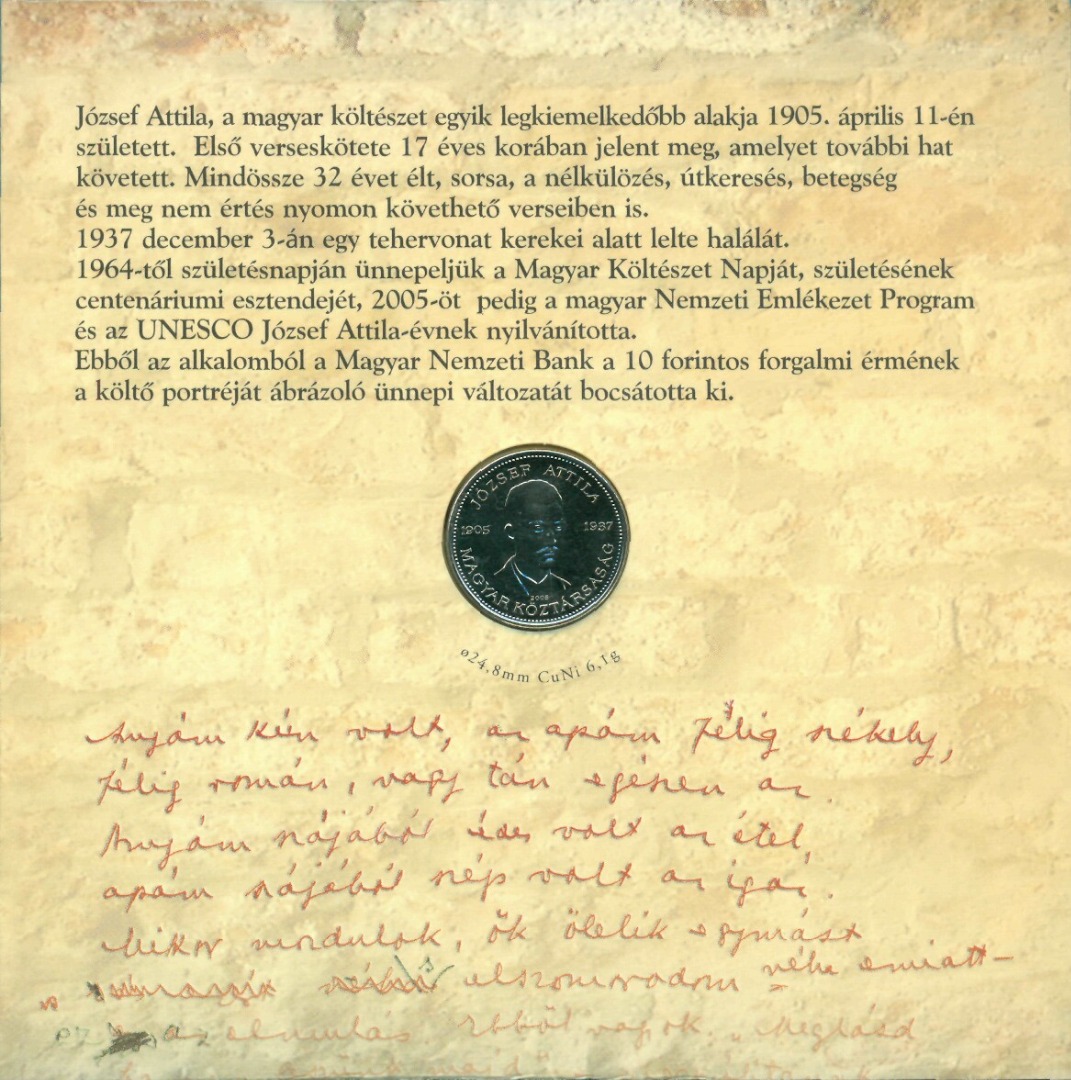 József Attila, a magyar költészet egyik legkiemelkedőbb alakja 1905. április 11-én
született.  Első verseskötete 17 éves korában jelent meg, amelyet további hat
követett. Mindössze 32 évet élt, sorsa, a nélkülözés, útkeresés, betegség
és meg nem értés nyomon követhető verseiben is.
1937 december 3-án egy tehervonat kerekei alatt lelte halálát.
1964-től születésnapján ünnepeljük a Magyar Költészet Napját, születésének
centenáriumi esztendejét, 2005-öt  pedig a magyar Nemzeti Emlékezet Program
és az UNESCO József Attila-évnek nyilvánította.
Ebből az alkalomból a Magyar Nemzeti Bank a 10 forintos forgalmi érmének
a költő portréját ábrázoló ünnepi változatát bocsátotta ki.
JÓZSEF ATTILA
1905 1937
MAGYAR KÖZTÁRSASÁG
ø24,8mm CuNi 6,1g
Anyám kún volt, az apám félig székely,
félig román, vagy tán egészen az.
Anyám szájából édes volt az étel,
apám szájából szép volt az igaz.
Mikor mozdulok, ők ölelik egymást
elszomorodom néha emiatt –
az elmulás. Ebből vagyok. „Meglásd